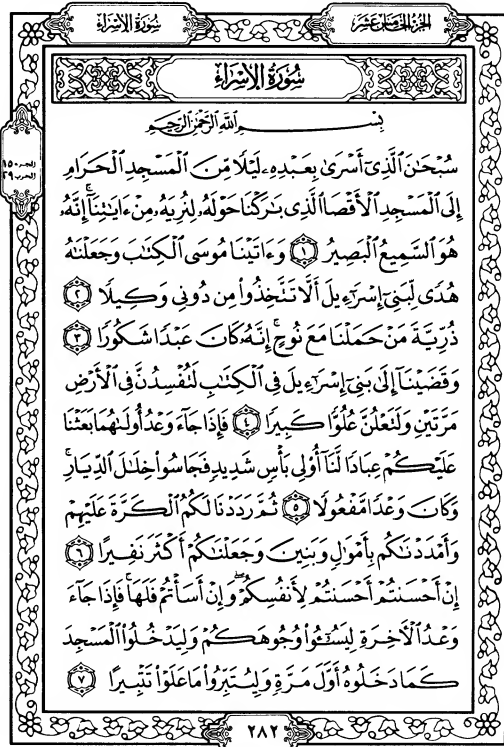 الجزء الخامس عشر
سورة الإسراء
سُورَةُ الإِسْرَاءِ
بِسْمِ اللَّهِ الرَّحْمَٰنِ الرَّحِيمِ
سُبْحَٰنَ الَّذِىٓ أَسْرَىٰ بِعَبْدِهِۦ لَيْلًا مِّنَ الْمَسْجِدِ الْحَرَامِ
إِلَى الْمَسْجِدِ الْأَقْصَا الَّذِى بَٰرَكْنَا حَوْلَهُۥ لِنُرِيَهُۥ مِنْ ءَايَٰتِنَآ ۚ إِنَّهُۥ
هُوَ السَّمِيعُ الْبَصِيرُ ١ وَءَاتَيْنَا مُوسَى الْكِتَٰبَ وَجَعَلْنَٰهُ
هُدًى لِّبَنِىٓ إِسْرَٰٓءِيلَ أَلَّا تَتَّخِذُوا۟ مِن دُونِى وَكِيلًا ٢
ذُرِّيَّةَ مَنْ حَمَلْنَا مَعَ نُوحٍ ۚ إِنَّهُۥ كَانَ عَبْدًا شَكُورًا ٣
وَقَضَيْنَآ إِلَىٰ بَنِىٓ إِسْرَٰٓءِيلَ فِى الْكِتَٰبِ لَتُفْسِدُنَّ فِى الْأَرْضِ
مَرَّتَيْنِ وَلَتَعْلُنَّ عُلُوًّا كَبِيرًا ٤ فَإِذَا جَآءَ وَعْدُ أُولَىٰهُمَا بَعَثْنَا
عَلَيْكُمْ عِبَادًا لَّنَآ أُو۟لِى بَأْسٍ شَدِيدٍ فَجَاسُوا۟ خِلَٰلَ الدِّيَارِ ۚ
وَكَانَ وَعْدًا مَّفْعُولًا ٥ ثُمَّ رَدَدْنَا لَكُمُ الْكَرَّةَ عَلَيْهِمْ
وَأَمْدَدْنَٰكُم بِأَمْوَٰلٍ وَبَنِينَ وَجَعَلْنَٰكُمْ أَكْثَرَ نَفِيرًا ٦
إِنْ أَحْسَنتُمْ أَحْسَنتُمْ لِأَنفُسِكُمْ ۖ وَإِنْ أَسَأْتُمْ فَلَهَا ۚ فَإِذَا جَآءَ
وَعْدُ الْءَاخِرَةِ لِيَسُۥٓـُٔوا۟ وُجُوهَكُمْ وَلِيَدْخُلُوا۟ الْمَسْجِدَ
كَمَا دَخَلُوهُ أَوَّلَ مَرَّةٍ وَلِيُتَبِّرُوا۟ مَا عَلَوْا۟ تَتْبِيرًا ٧
الجزء ١٥
الحزب ٢٩
٢٨٢